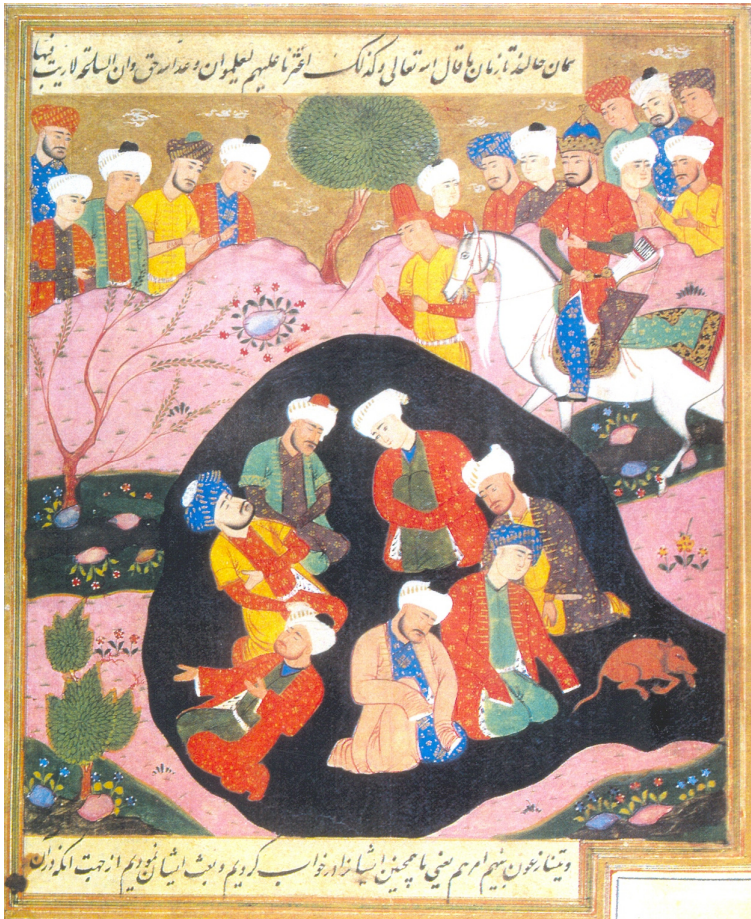 همان حالند تا زمان ما قال الله تعالی و کذلک اعثرنا علیهم لیعلموا ان وعد الله حق و ان الساعة لا ریب فیها
و یتنازعون بینهم امرهم یعنی همچنین ایشانرا در خواب کردیم و بعث ایشان نمودیم از جهت انکه دران